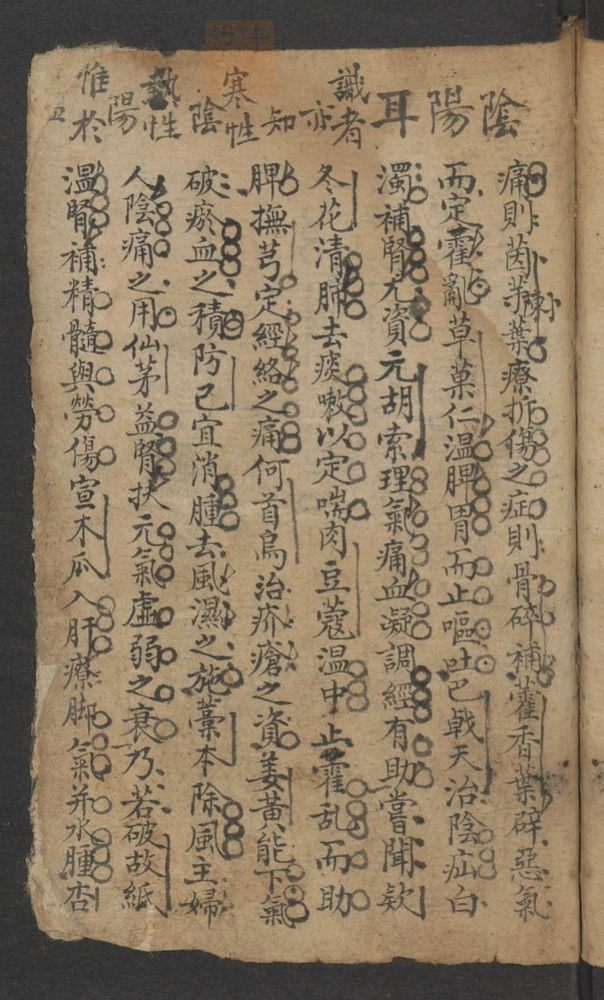 陰陽耳
識者亦知寒性陰熱性陽惟於
痛則茵芋葉療折傷之症則骨碎補藿香葉辟惡氣
而定霍亂草菓仁温脾胃而止嘔吐巴戟天治陰疝白
濁補腎尤資元胡索理氣痛血凝調經有助嘗聞欵
冬花清肺去痰嗽以定喘肉豆蔻温中止霍乱而助
脾撫芎定經絡之痛何首烏治疥瘡之資姜黄能下氣
破瘀血之積防已宜消腫去風濕之施藁本除風主婦
人陰痛之用仙茅益腎扶元氣虛弱之衰乃若破故紙
温腎補精髓與勞傷宣木瓜入肝療脚氣并水腫杏